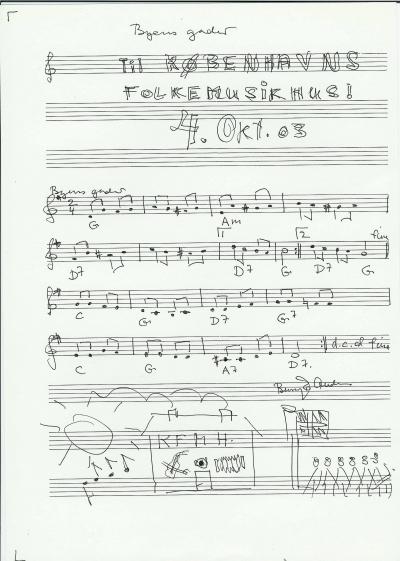 Byens gader
Til KØBENHAVNS
FOLKEMUSIKHUS!
4. OKT. 03
Byens gader
2/4
G Am
1 2 fin
D7 D7 G D7 G
C G D7 G7
d.c. al fine
C G A7 D7.
K F M H.